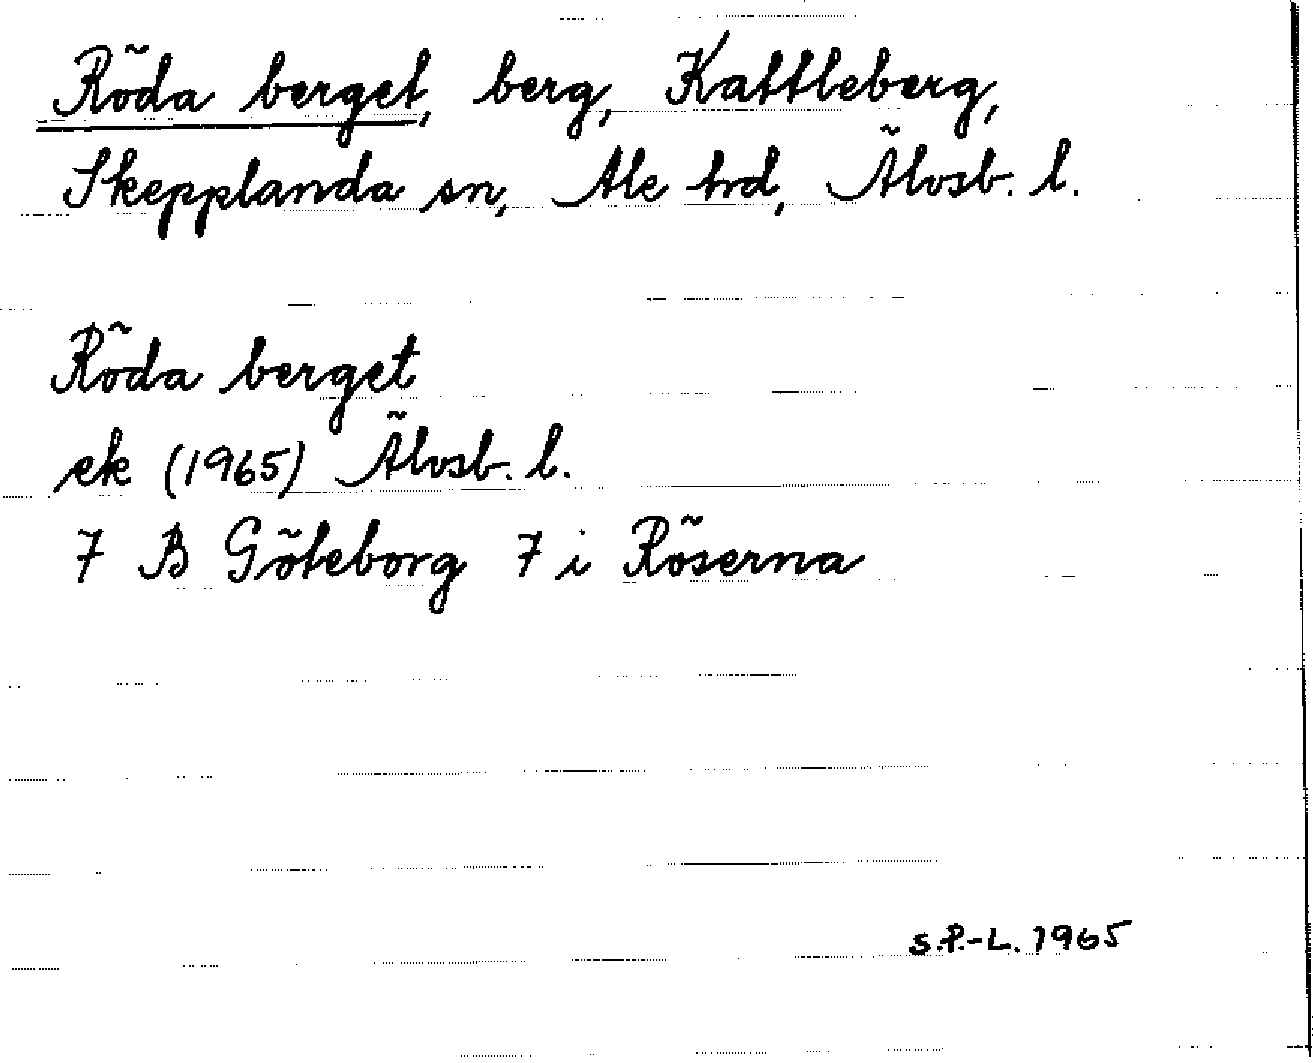 Röda berget, berg, Kattleberg,
Skepplanda sn, Ale hrd, Älvsb. l.
Röda berget
ek (1965) Älvsb. l.
7 B Göteborg 7 i Röserna
S.P.-L. 1965